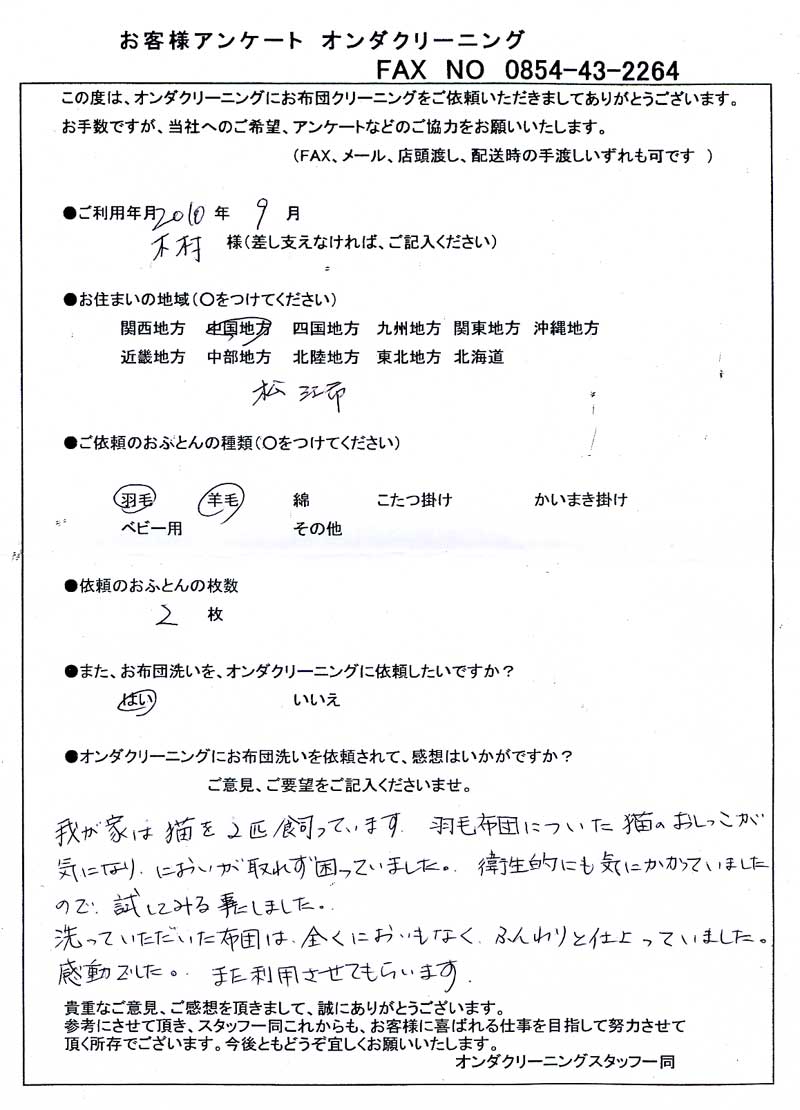 お客様アンケート オンダクリーニング
FAX NO 0854-43-2264
この度は、オンダクリーニングにお布団クリーニングをご依頼いただきましてありがとうございます。
お手数ですが、当社へのご希望、アンケートなどのご協力をお願いいたします。
(FAX、メール、店頭渡し、配送時の手渡しいずれも可です )
●ご利用年月 2010 年 9 月
木村 様(差し支えなければ、ご記入ください)
●お住まいの地域(〇をつけてください)
関西地方 中国地方 四国地方 九州地方 関東地方 沖縄地方
近畿地方 中部地方 北陸地方 東北地方 北海道
松江市
●ご依頼のおふとんの種類(〇をつけてください)
羽毛 羊毛 綿 こたつ掛け かいまき掛け
ベビー用 その他
●依頼のおふとんの枚数
2 枚
●また、お布団洗いを、オンダクリーニングに依頼したいですか？
はい いいえ
●オンダクリーニングにお布団洗いを依頼されて、感想はいかがですか？
ご意見、ご要望をご記入くださいませ。
我が家は猫を2匹飼っています. 羽毛布団についた猫のおしっこが
気になり、においが取れず困っていました。 衛生的にも気にかかっていました
ので、試してみる事にしました。
洗っていただいた布団は、全くにおいもなく、ふんわりと仕上っていました。
感動でした。 また利用させてもらいます.
貴重なご意見、ご感想を頂きまして、誠にありがとうございます。
参考にさせて頂き、スタッフ一同これからも、お客様に喜ばれる仕事を目指して努力させて
頂く所存でございます。今後ともどうぞ宜しくお願いいたします。
オンダクリーニングスタッフ一同